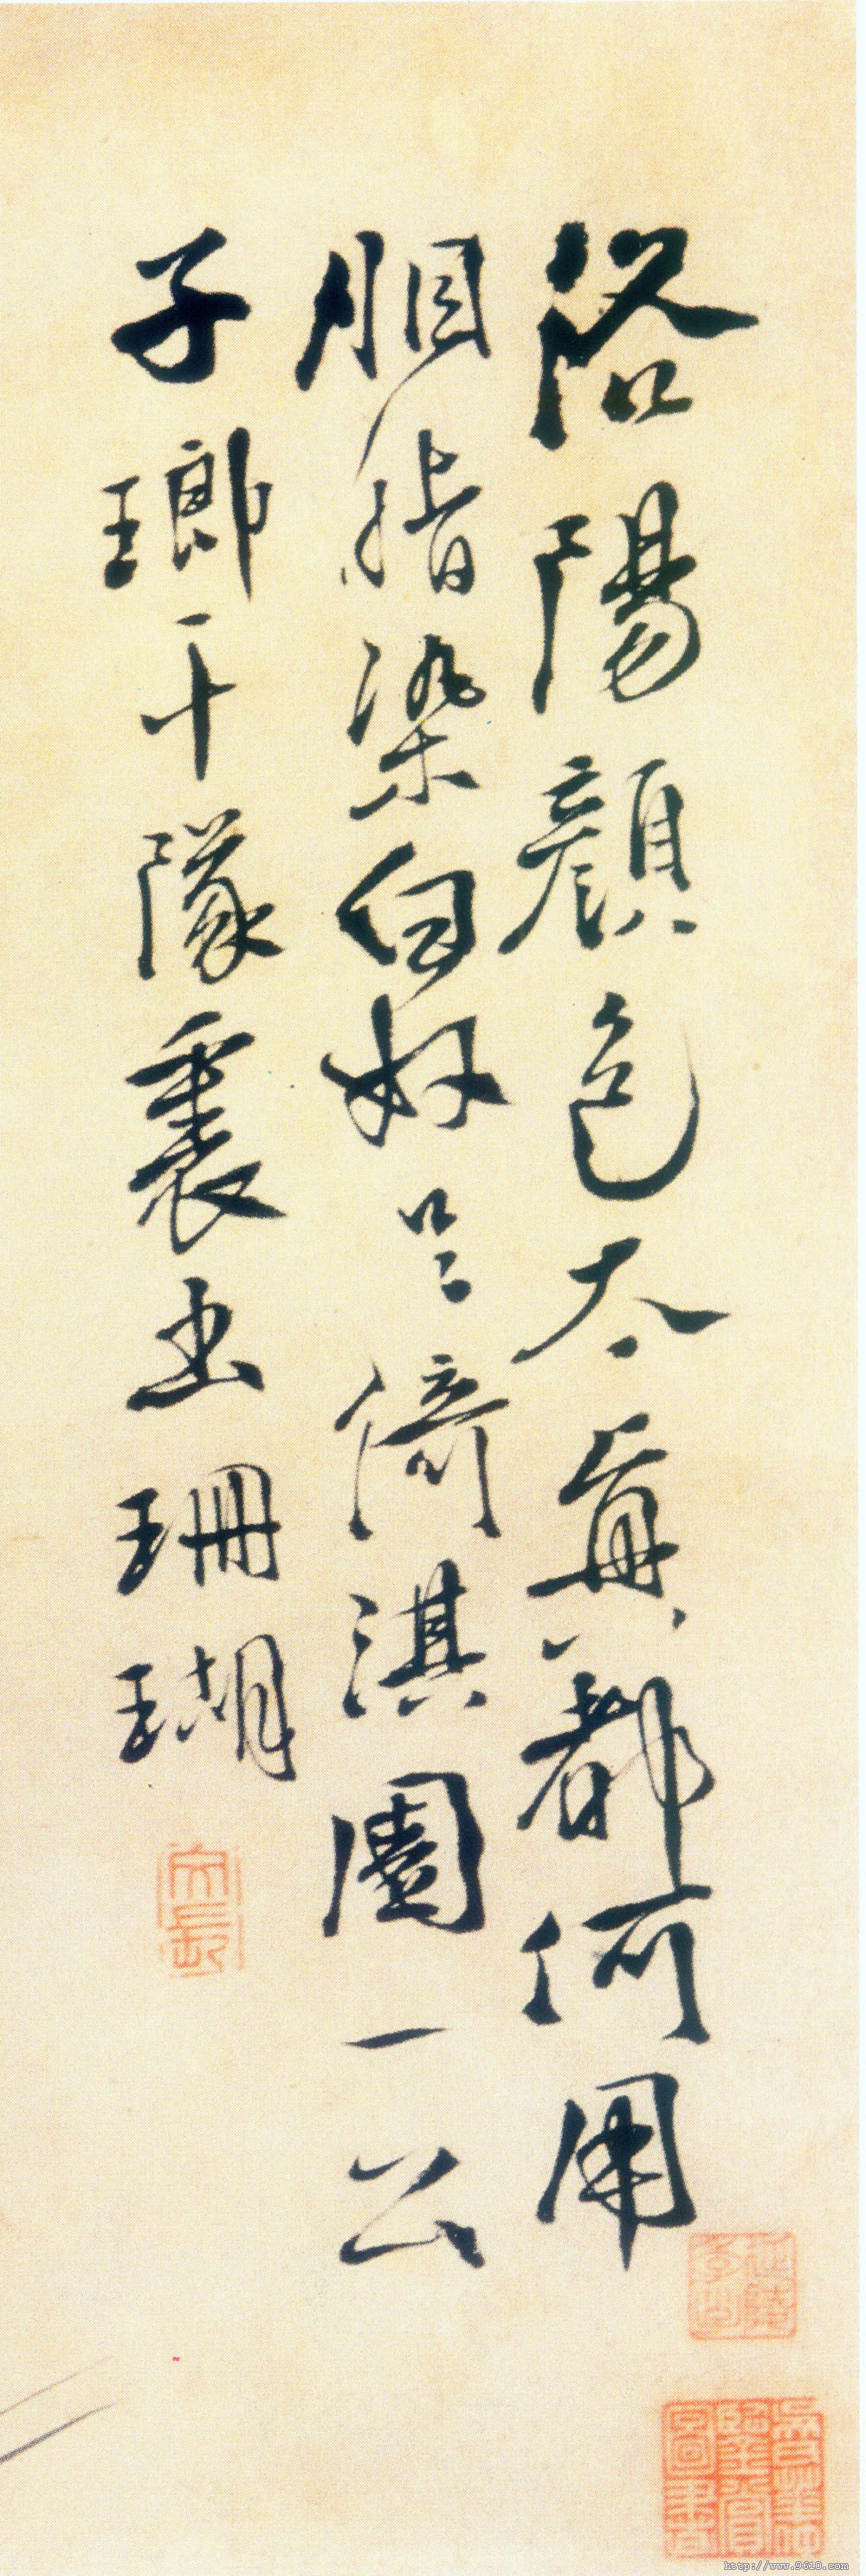 洛陽顏色太真都何用
胭脂染白奴只倚淇園一公
子瑯干隊裏出珊瑚
文長
http://www.9610.com